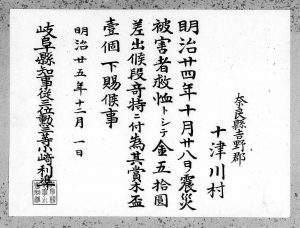 奈良縣吉野郡
十津川村
明治廿四年十月廿八日震災
被害者救恤トシテ金五拾圓
差出候段奇特ニ付為其賞木盃
壹個下賜候事
明治廿五年十二月一日
岐阜縣知事從三位勲三等小崎利準